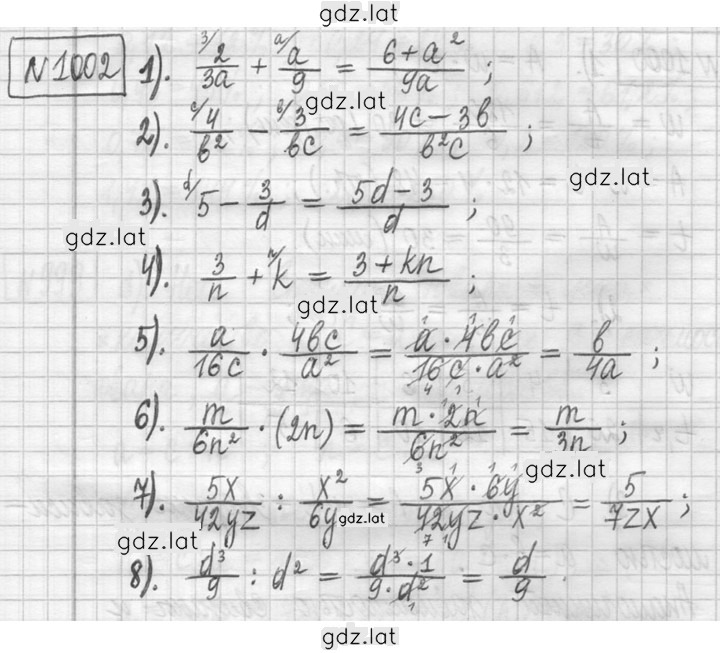 gdz.lat
№1002 1). ³/2/3a + ᵃ/a/9 = (6+a²)/9a ;
gdz.lat
2). ᶜ/4/b² - ᵇ/3/bc = (4c-3b)/b²c ;
gdz.lat
3). ᵈ/5 - 3/d = (5d-3)/d ;
gdz.lat
4). 3/n + ⁿ/k = (3+kn)/n ;
gdz.lat
5). a/16c · 4bc/a² = (a · 4bc)/(16c · a²) = b/4a ;
6). m/6n² · (2n) = (m · 2n)/6n² = m/3n ;
gdz.lat
7). 5x/42yz : x²/6y = (5x · 6y)/(42yz · x²) = 5/7zx ;
gdz.lat
gdz.lat
8). d³/9 : d² = (d³ · 1)/(9 · d²) = d/9 .
gdz.lat